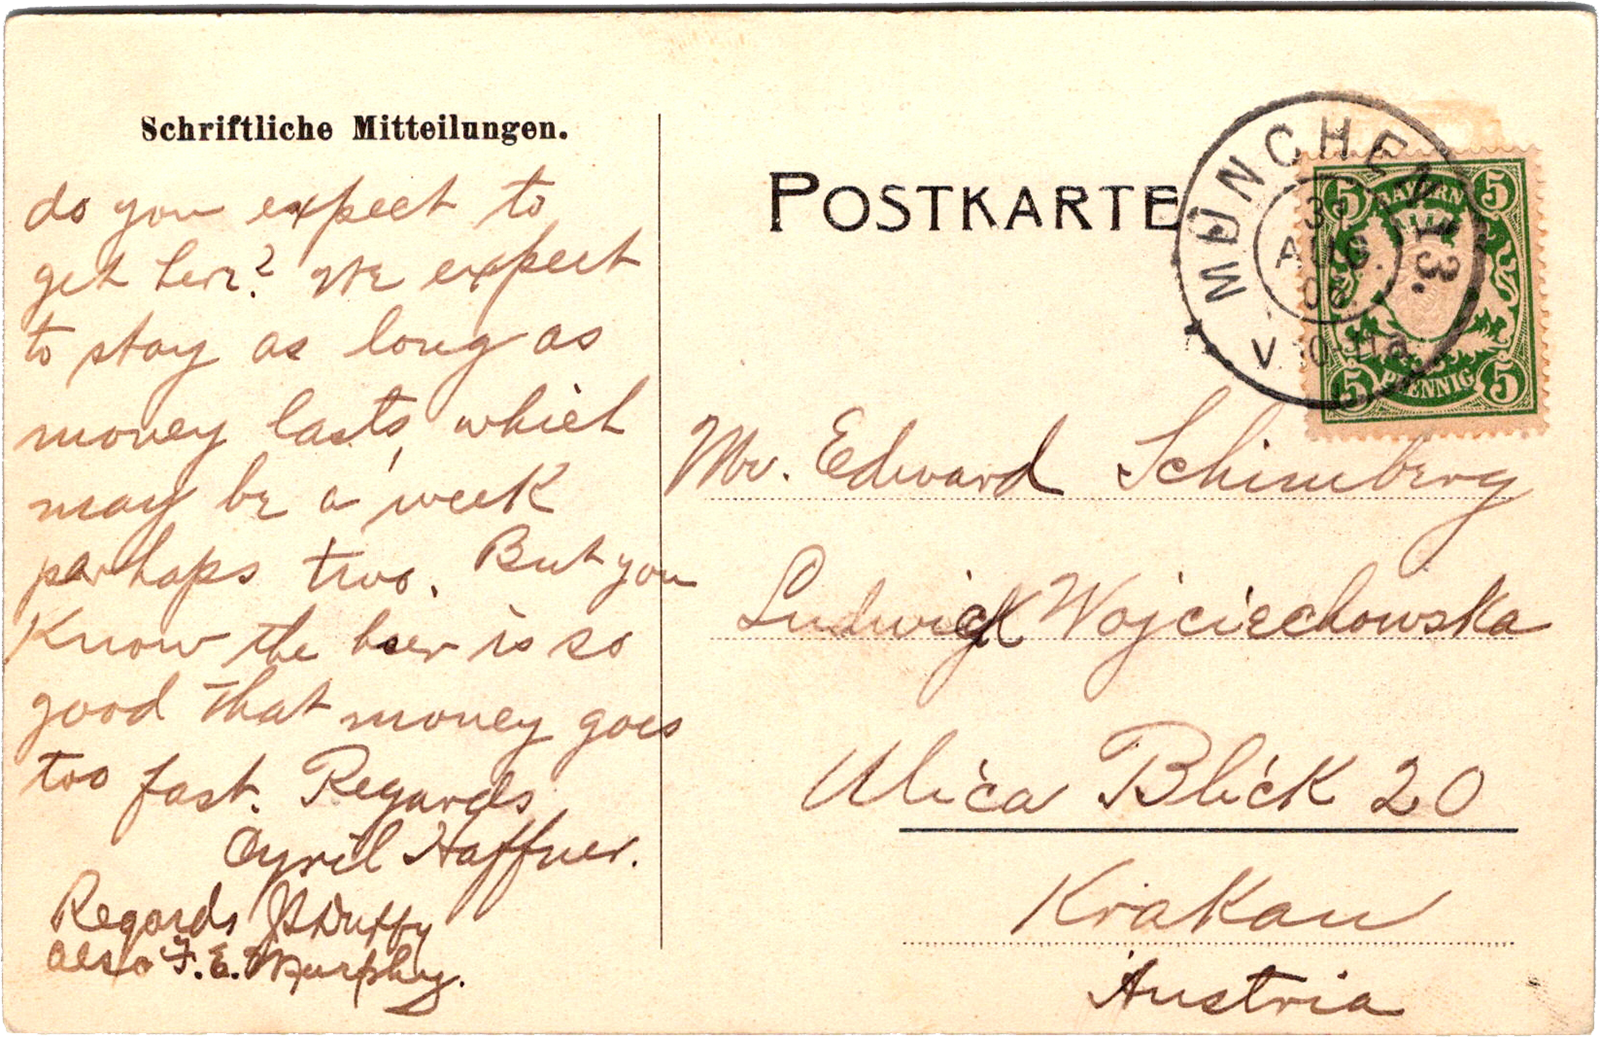 Schriftliche Mitteilungen.
do you expect to
get here? We expect
to stay as long as
money lasts, which
may be a week
perhaps two. But you
Know the beer is so
good that money goes
too fast. Regards
Cyril Haffner.
Regards J Duffy
also F. E. Murphy.
POSTKARTE
MÜNCHEN 13.
31
AUG.
V. 10-11
5 BAYERN 5
5 PFENNIG 5
Mr. Edward Schimberg
Ludwick Wojciechowska
Ulica Blick 20
Krakau
Austria